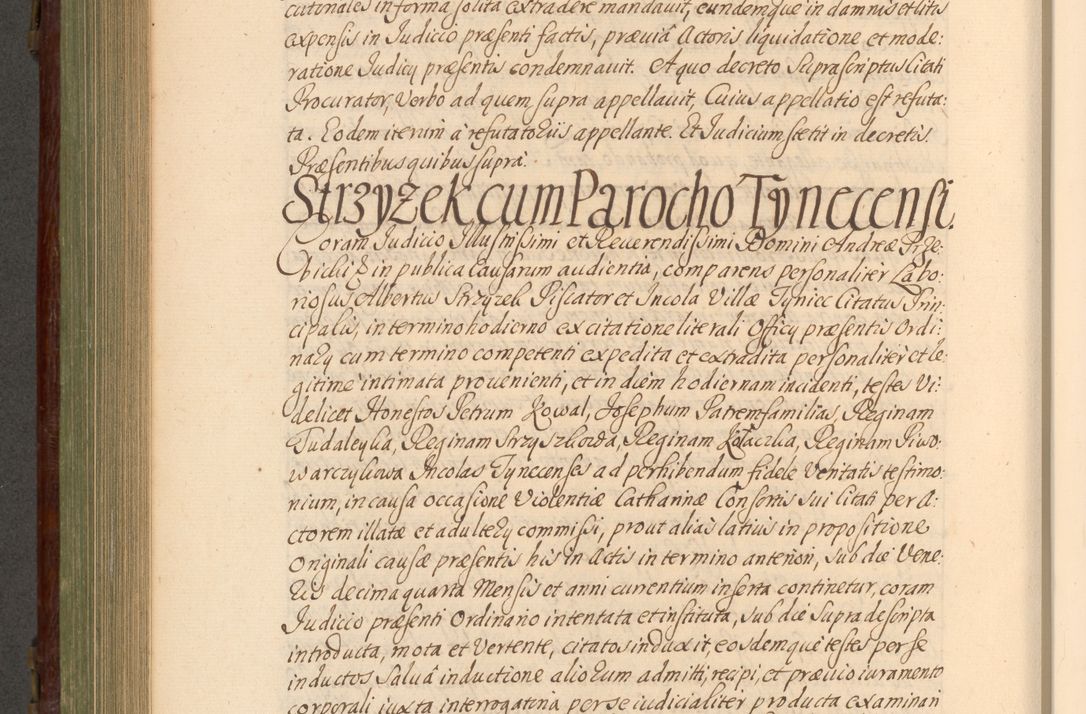 cutoriales in forma solita extradere mandavit, eundemque in damnis et litis
expensis in Judicio præsenti factis, prævia Actoris liquidatione et mode:
ratione Judicij præsentis condemnavit. A quo decreto Suprascriptus Citati
Procurator, Verbo ad quem supra appellavit, Cuius appellatio est refuta:
ta. Eodem iterum à refutatorijs appellante. Et Judicium stetit in decretis.
Præsentibus quibus supra.
Strzyżek cum Parocho Tynecensi.
Coram Judicio Illustrissimi et Reverendissimi Domini Andreæ Trze:
bicki in publica Causarum audientia, comparens personaliter Labo:
riosus Albertus Strzyżek Piscator et Incola Villæ Tyniec Citatus Prin:
cipalis, in termino hodierno ex citatione literali Officij præsentis Ordi:
narij cum termino competenti expedita et extradita personaliter et le:
gitime intimata provenienti, et in diem hodiernam incidenti, testes Vi:
delicet Honestos Petrum Kowal, Josephum Patremfamilias, Reginam
Reginam Kołaczka, Reginam Piwo:
warczykowa Incolas Tynecenses ad perhibendum fidele Veritatis testimo:
nium, in causa occasione Violentiæ Catharinæ Consortis sui Citati per A:
ctorem illatæ et adulterij commissi, prout alias latius in propositione
Originali causæ præsentis his in Actis in termino anteriori, sub die Vene:
ris decima quarta Mensis et anni currentium inserta continetur, coram
Judicio præsenti Ordinario intentata et instituta, sub die Supra descripta
introducta, mota et Vertente, citatos induxit, eosdemque testes per se
inductos Salvâ inductione aliorum admitti, recipi, et prævio iuramento
corporali iuxta interrogatoria per se iudicialiter producta examinari